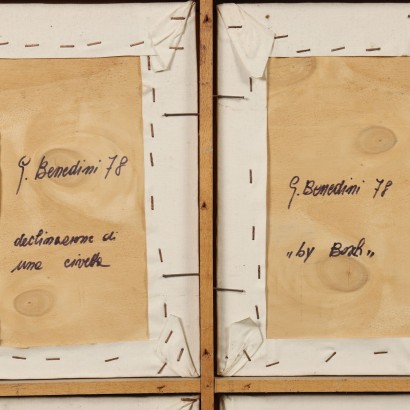 G. Benedini 78
declinazione di
una civetta
G. Benedini 78
„by Bosch„